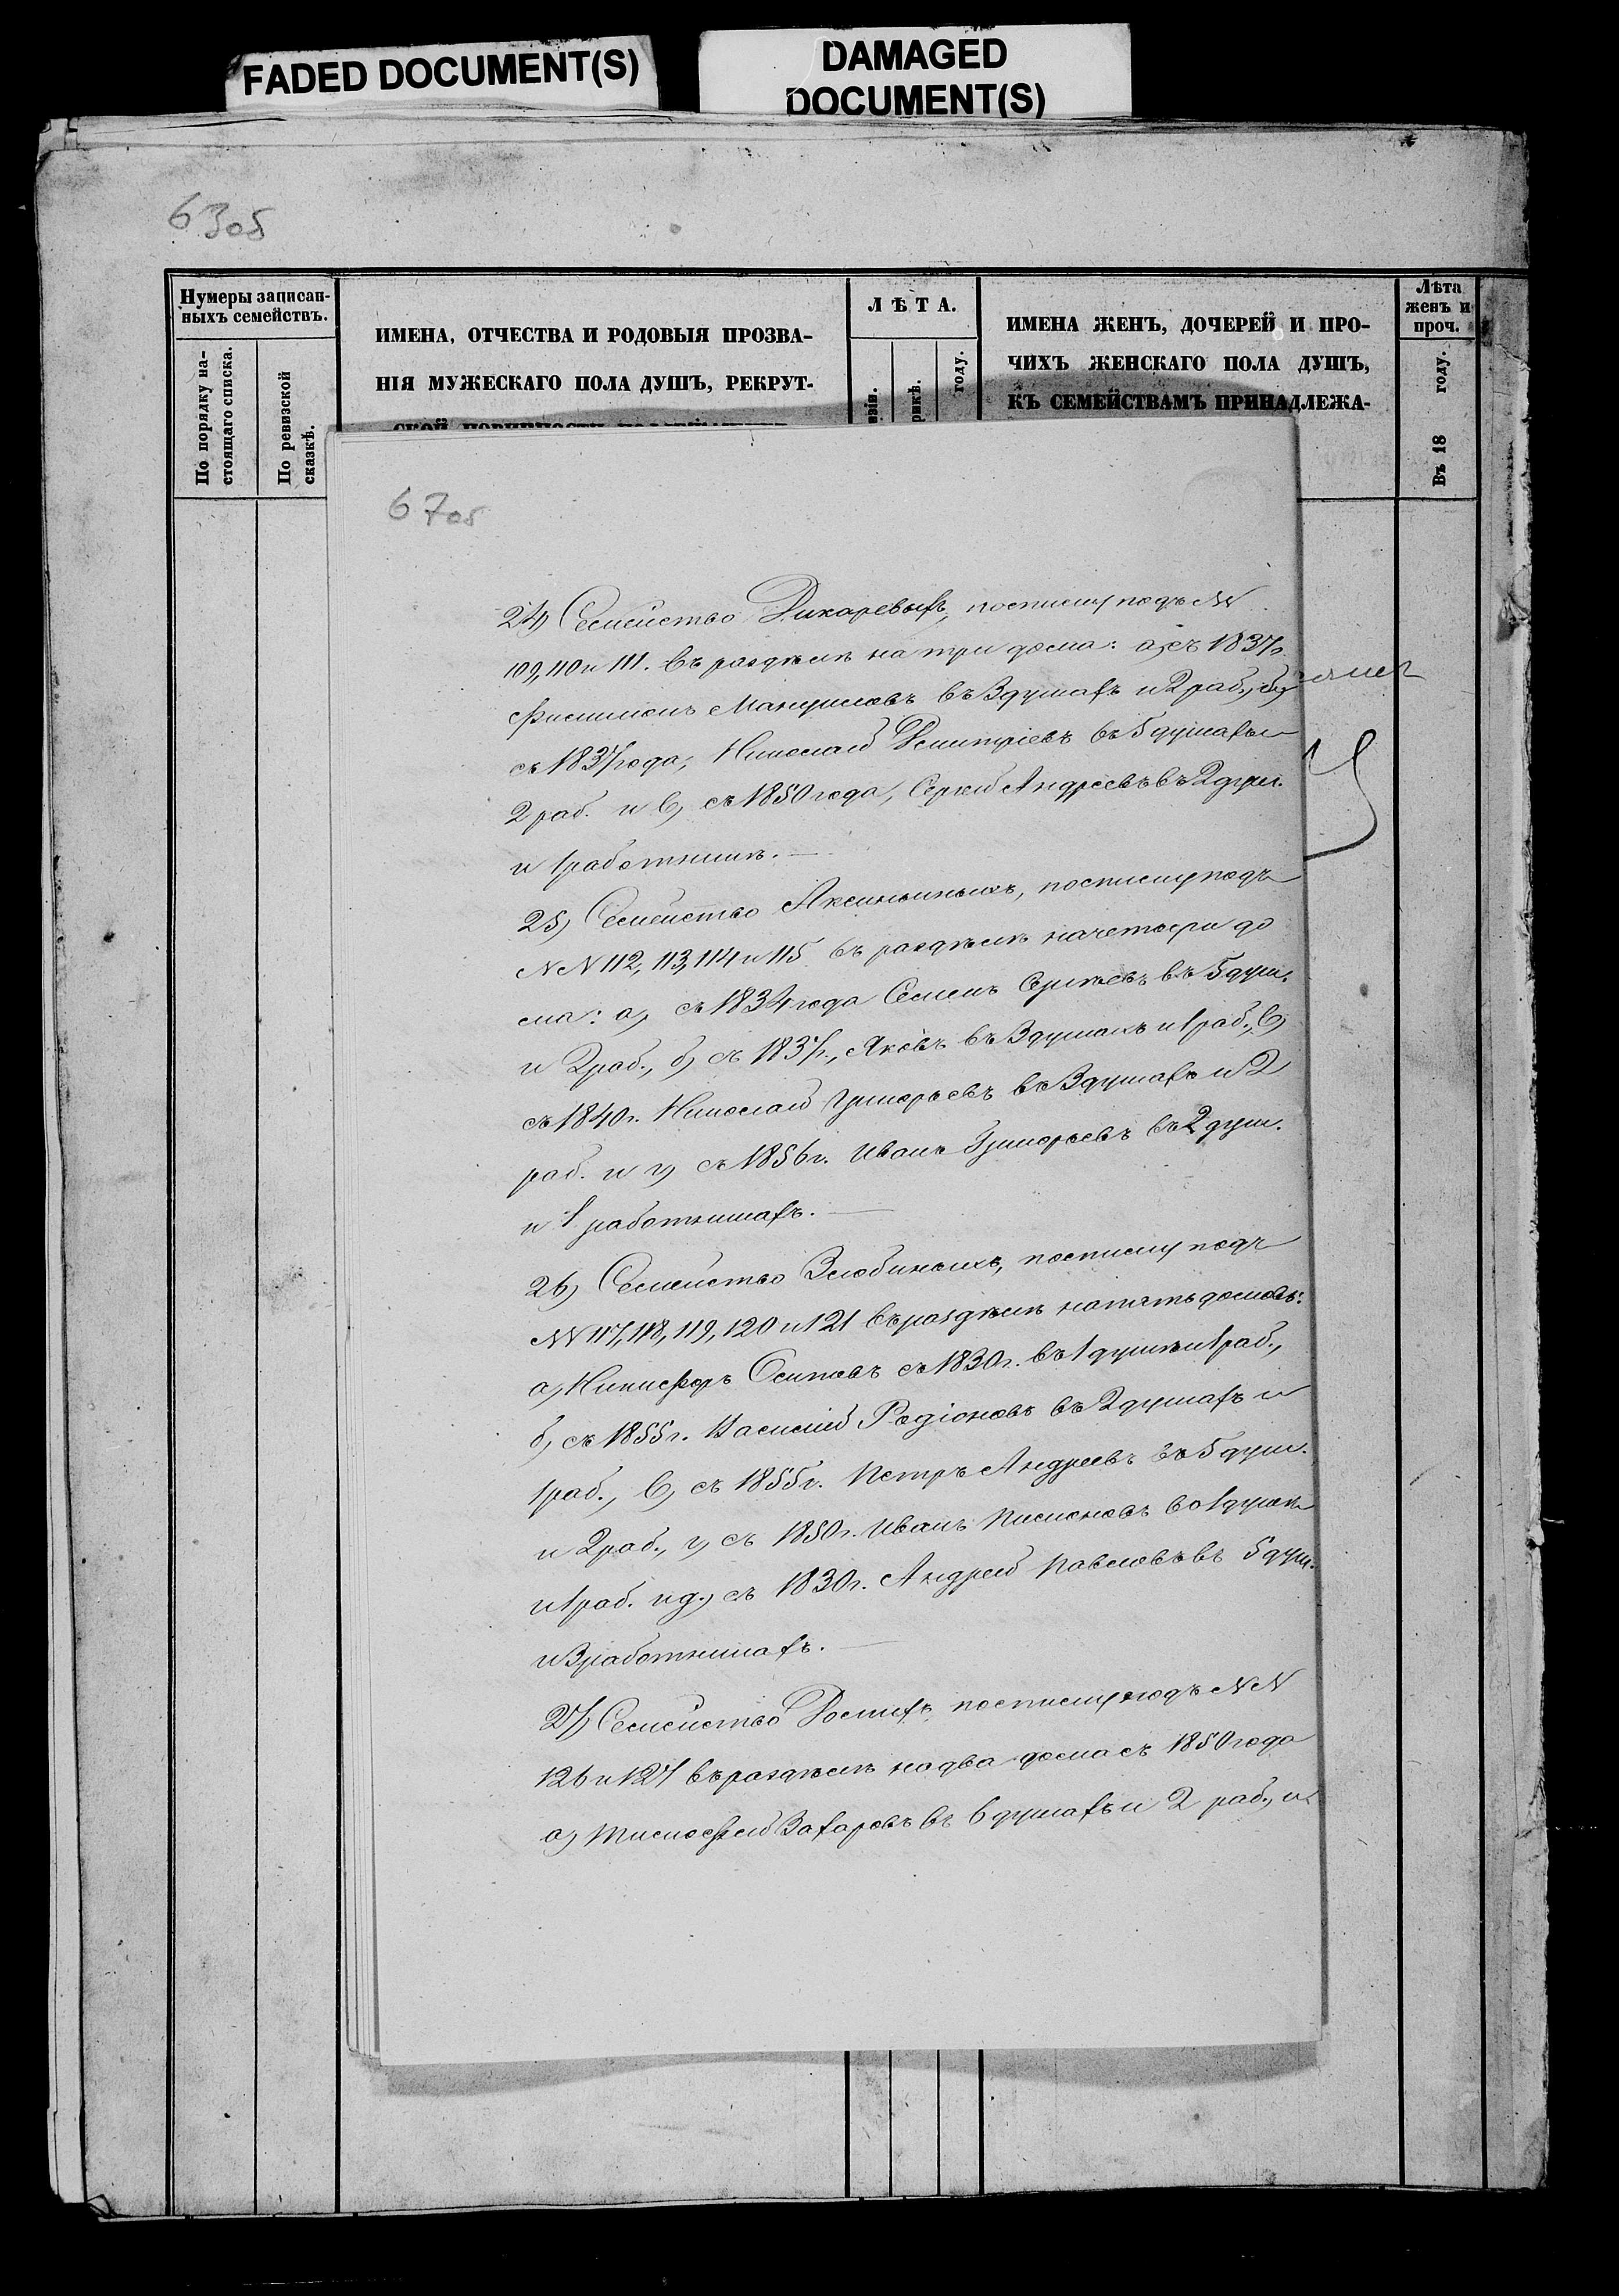 FADED DOCUMENT(S)
DAMAGED
DOCUMENT(S)
63об
Нумеры записан-
ныхъ семействъ.
По порядку на-
стоящаго списка.
По ревизской
сказкѣ.
ИМЕНА, ОТЧЕСТВА И РОДОВЫЯ ПРОЗВА-
НІЯ МУЖЕСКАГО ПОЛА ДУШЪ, РЕКРУТ-
ЛѢТА.
году.
ИМЕНА ЖЕНЪ, ДОЧЕРЕЙ И ПРО-
ЧИХЪ ЖЕНСКАГО ПОЛА ДУШЪ,
КЪ СЕМЕЙСТВАМЪ ПРИНАДЛЕЖА-
Лѣта
женъ и
проч.
Въ 18 году.
67об
24) Семейство Дикаревыхъ, по списку подъ №№
109, 110 и 111. въ раздѣлѣ на три дома: а) съ 1837г.
Филимонъ Мануиловъ въ 3 душахъ и 2 раб., б)
съ 1837 года, Николай Дмитріевъ въ 5 душахъ и
2 раб. и в) съ 1850 года, Сергей Андреевъ въ 2 душ.
и 1 работникъ.
25) Семейство Аксиньиныхъ, по списку подъ
№№ 112, 113, 114 и 115 въ раздѣлѣ на четыри до
ма: а) съ 1834 года Семенъ Сергѣевъ въ 5 душ.
и 2 раб., б) съ 1837г., Яковъ въ 3 душахъ и 1 раб., в)
съ 1840г. Николай Григорьевъ въ 3 душахъ и 2
раб. и г) съ 1856г. Иванъ Григорьевъ въ 2 душ.
и 1 работникахъ.
26) Семейство Злобиныхъ, по списку подъ
№№ 117, 118, 119, 120 и 121 въ раздѣлѣ на пять домовъ:
а) Никифоръ Осиповъ съ 1830г. въ 1 душѣ и 1 раб.,
б) съ 1855г. Василій Родіоновъ въ 2 душахъ и
1 раб., в) съ 1855г. Петръ Андреевъ въ 5 душ.
и 2 раб., г) съ 1850г. Иванъ Пимоновъ во 1 душѣ
и 1 раб. и д) съ 1830г. Андрей Павловъ въ 5 душ.
и 3 работникахъ.
27) Семейство по списку подъ №№
126 и 127 въ раздѣлѣ на два дома съ 1850 года
а) Тимофей Захаровъ въ 6 душахъ и 2 раб., и